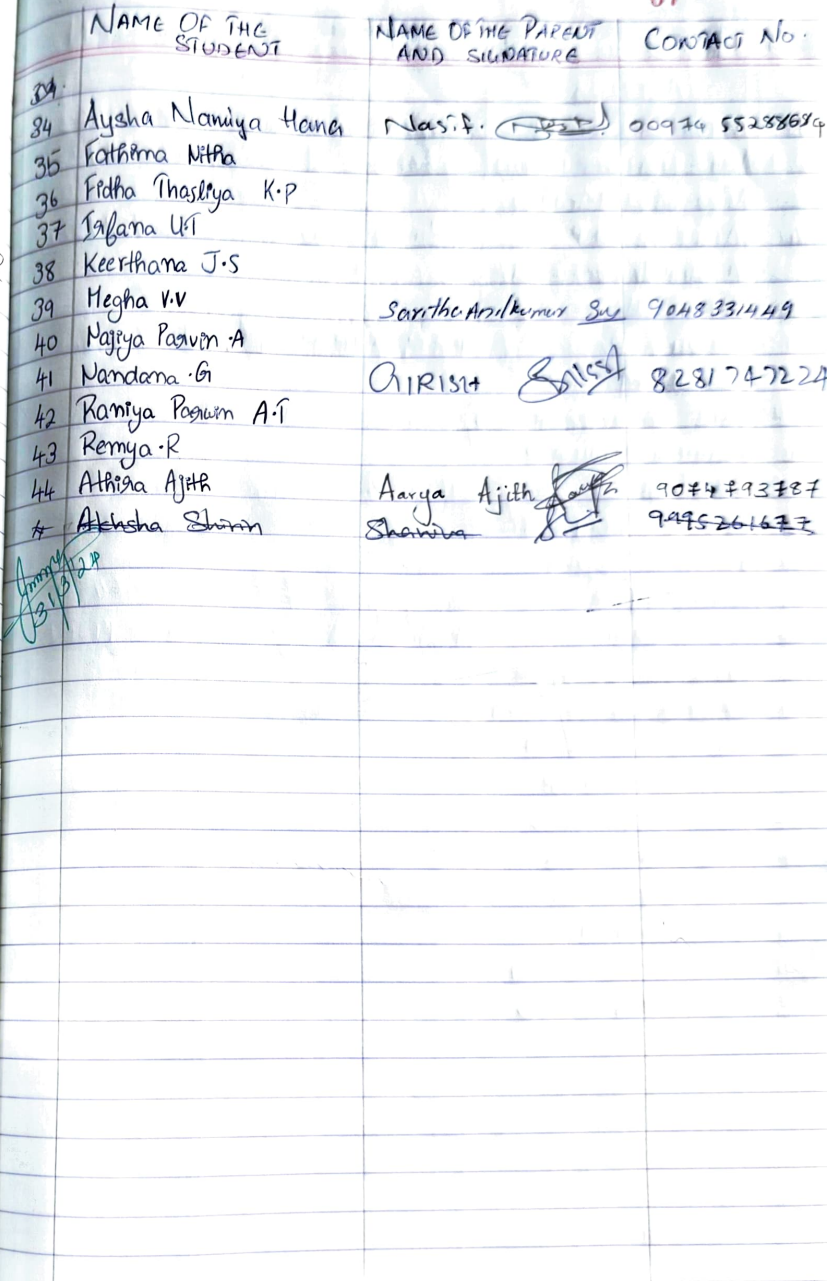 NAME OF THE STUDENT NAME OF THE PARENT AND SIGNATURE CONTACT No.
34 Aysha Namiya Hana Nasif. 00974 55288684
35 Fathima Nitha
36 Fidha Thasliya K.P
37 Irfana U.T
38 Keerthana J.S
39 Megha V.V Saritha Anilkumar 9048331449
40 Najiya Parvin .A
41 Nandana .G GIRISH 8281747224
42 Raniya Parwin A.T
43 Remya.R
44 Athira Ajith Aarya Ajith 9074793787
Akhsha Shirin 9995261677
31/3/24